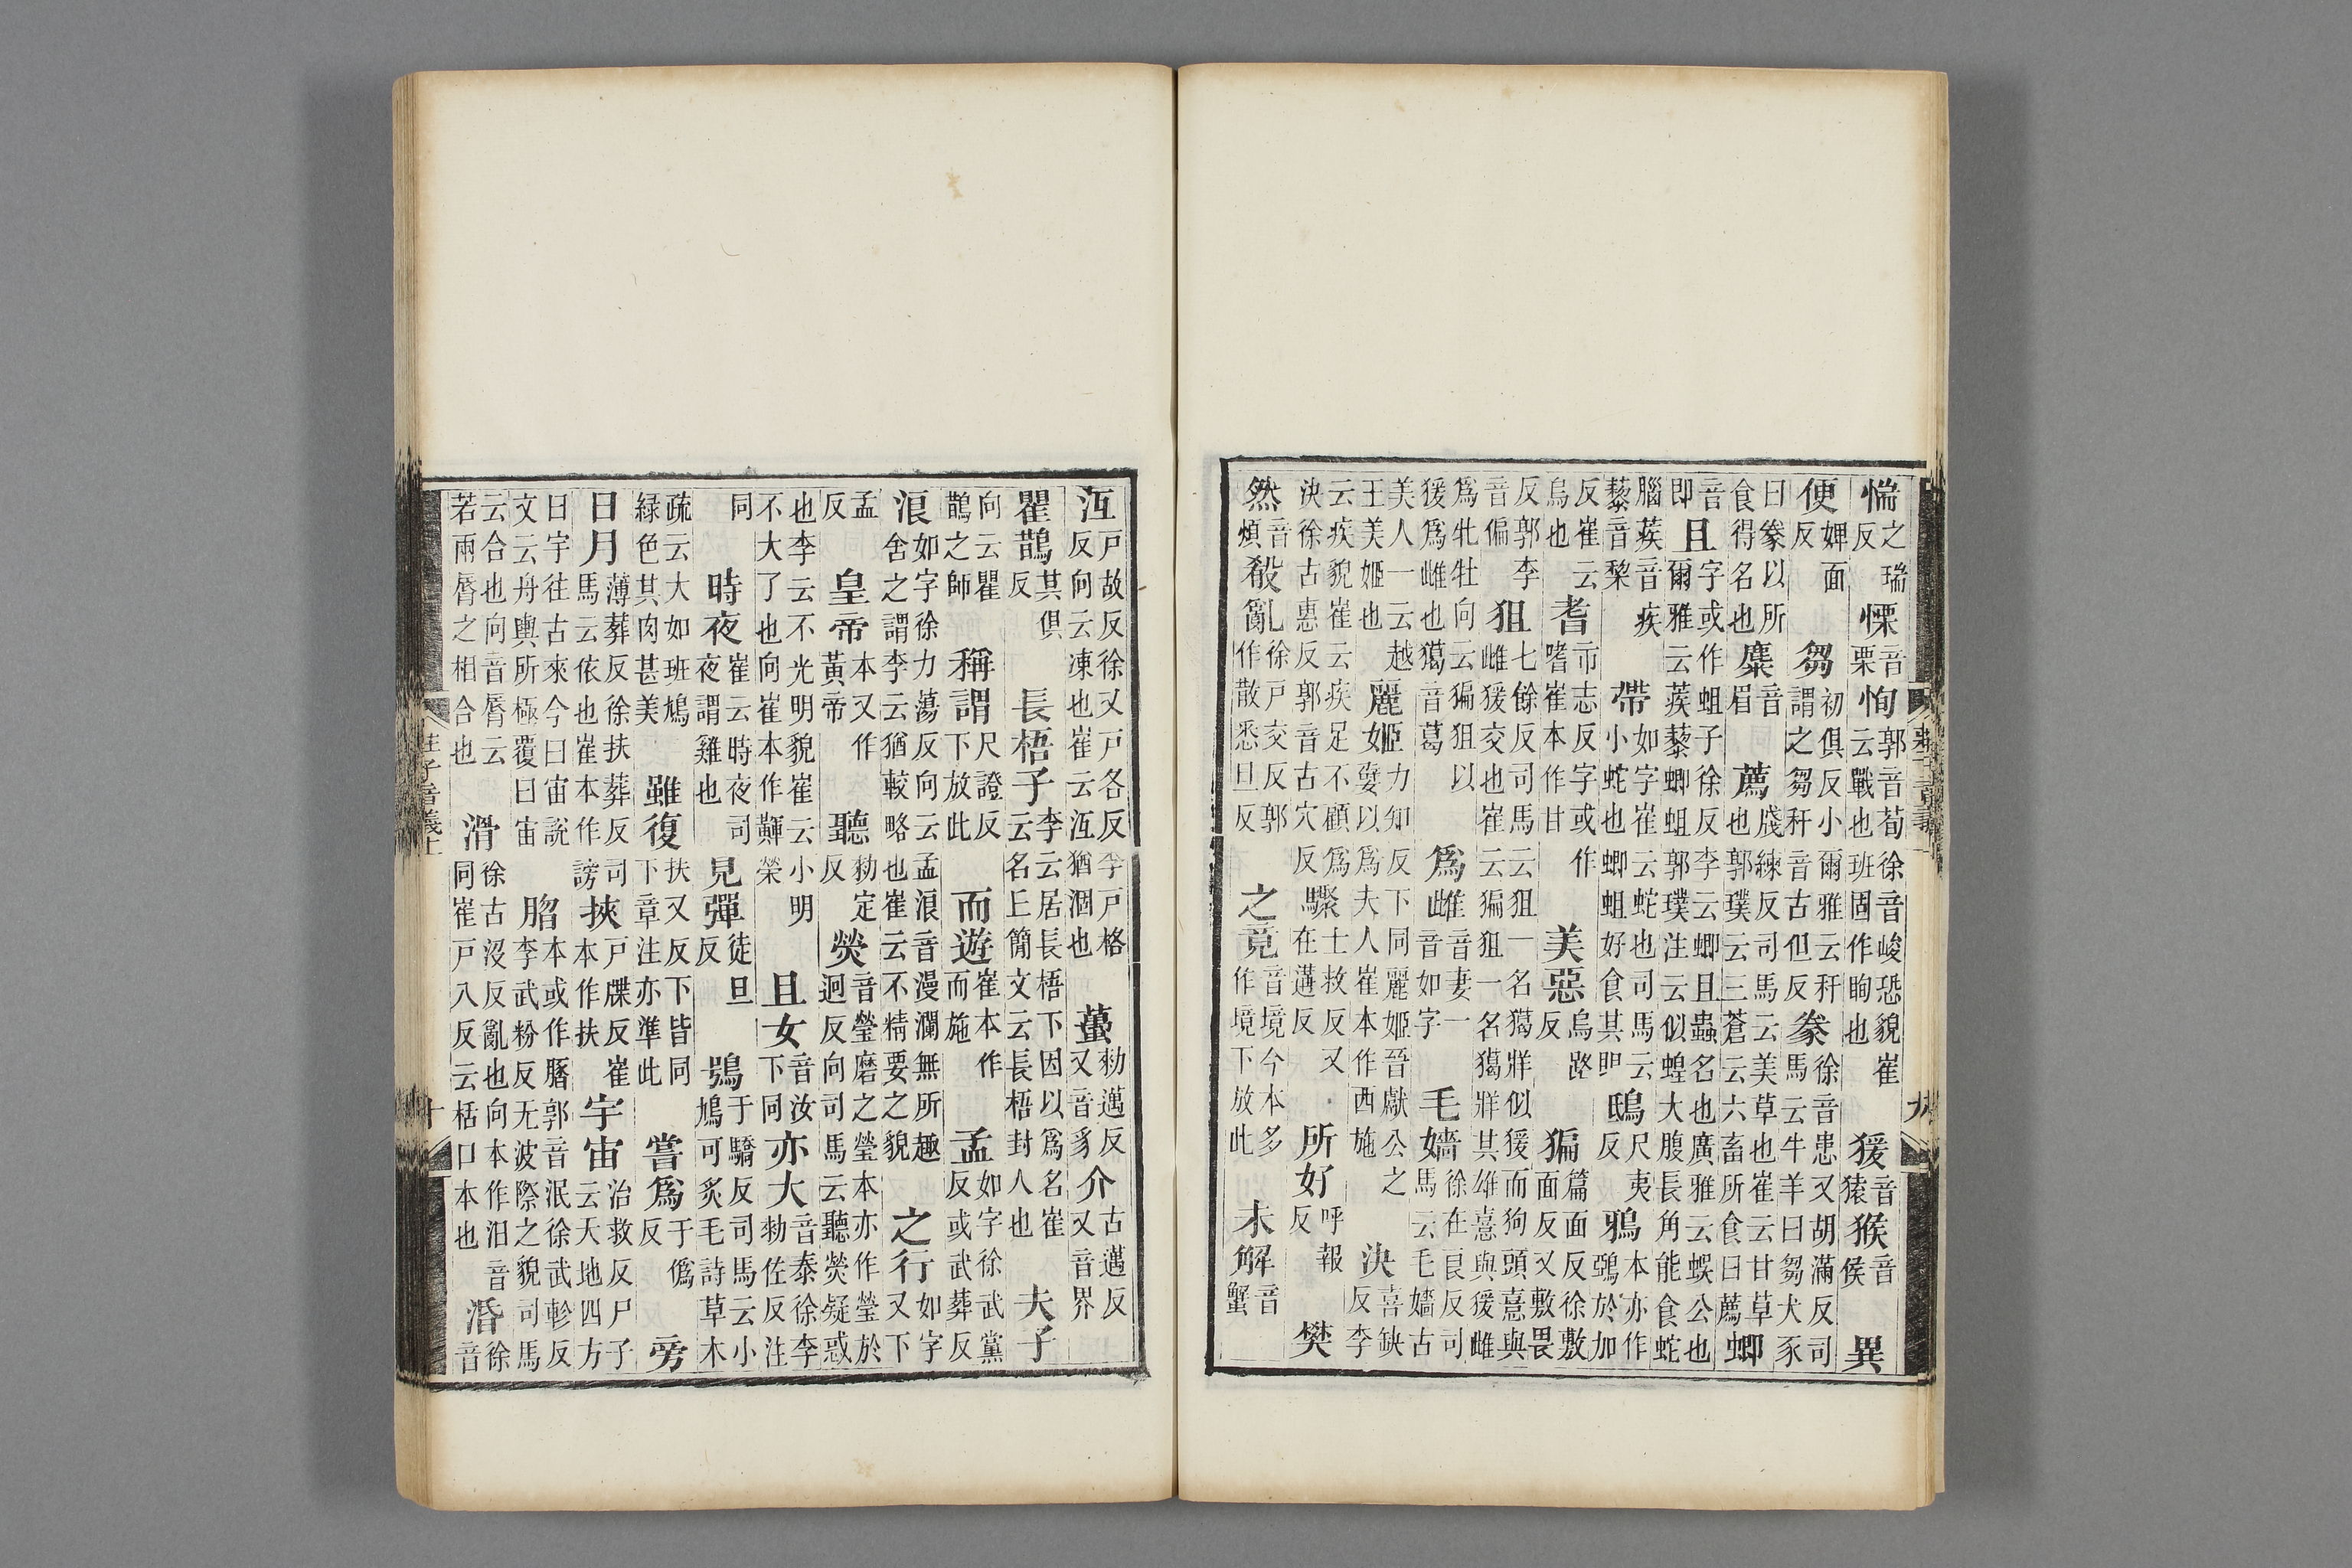 惴之瑞反慄音栗恂郭音荀徐音峻恐貌崔云戰也班固作眴也猨音猿猴音侯異
便婢面反芻初俱反小爾雅云秆謂之芻秆音古但反豢徐音患又胡滿反司馬云牛羊曰芻犬豕
曰豢以所食得名也麋音眉薦牋練反司馬云美草也崔云甘草也郭璞云三蒼云六畜所食曰薦蝍
音即且字或作蛆子徐反李云蝍且蟲名也廣雅云蜈公也爾雅云蒺藜蝍蛆郭璞注云似蝗大腹長角能食蛇
腦蒺音疾藜音棃帶如字崔云蛇也司馬云小蛇也蝍蛆好食其眼鴟尺夷反鴉本亦作鵶於加
反崔云烏也耆市志反字或作嗜崔本作甘美惡烏路反猵篇面反徐敷面反又敷畏
反郭李音偏狙七餘反司馬云狙一名獦牂似猨而狗頭憙與雌猨交也崔云猵狙一名獦牂其雄憙與猨雌
爲牝牡向云猵狙以猨爲雌也獦音葛爲雌音妻一音如字毛嬙徐在良反司馬云毛嬙古
美人一云越王美姬也麗姬力知反下同麗姬晉獻公之嬖以爲夫人崔本作西施決喜缺反李
云疾貌崔云疾足不顧爲決徐古惠反郭音古穴反驟士救反又在遘反所好呼報反樊
然音煩殽亂徐戶交反郭作散悉旦反之竟音境今本多作境下放此未解音蟹
沍戶故反徐又戶各反李戶格反向云凍也崔云沍猶涸也蠆勑邁反又音豸介古邁反又音界
瞿鵲其俱反長梧子李云居長梧下因以爲名崔云名丘簡文云長梧封人也夫子
向云瞿鵲之師稱謂尺證反下放此而遊崔本作而施孟如字徐武黨反或武葬反
浪如字徐力蕩反向云孟浪音漫瀾無所趣舍之謂李云猶較略也崔云不精要之貌之行如字又下
孟反皇帝本又作黃帝聽勑定反熒音瑩磨之瑩本亦作瑩於迥反向司馬云聽熒疑惑
也李云不光明貌崔云小明不大了也向崔本作䡺榮且女音汝下同亦大音泰徐李勑佐反注
同時夜崔云時夜司夜謂雞也見彈徒旦反鴞于驕反司馬云小鳩可炙毛詩草木
疏云大如班鳩緑色其肉甚美雖復扶又反下皆同下章注亦準此嘗爲于僞反旁
日月薄葬反徐扶葬反司馬云依也崔本作謗挾戶牒反崔本作扶宇宙治救反尸子云天地四方
曰宇往古來今曰宙說文云舟輿所極覆曰宙脗本或作䐇郭音泯徐武軫反李武粉反无波際之貌司馬
云合也向音脣云若兩脣之相合也滑徐古沒反亂也向本作汨音同崔戶八反云栝口本也湣徐音